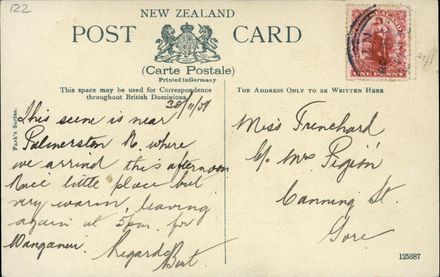 122
NEW ZEALAND
POST CARD
(Carte Postale)
Printed in Germany
This space may be used for Correspondence
throughout British Dominions.
THE ADDRESS ONLY TO BE WRITTEN HERE
Park's Series.
This scene is near
Palmerston N. where
we arrived this afternoon
Nice little place but
very warm, leaving
again at 5pm for
Wanganui
Regards
Bert
Miss Trenchard
C/o Mrs Pigeon
Canning St.
Gore
ONE PENNY
125387